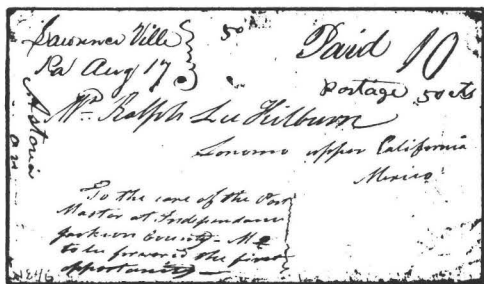 Lawrence Ville
Pa Aug 17
50
Paid 10
Postage 50 cts
Astoria
Mr. Ralph Lee Kilburn
Sonomo upper California
Mexico
To the care of the Post
Master at Independance
Jackson County - Mo
to be forward the first
opportunity -